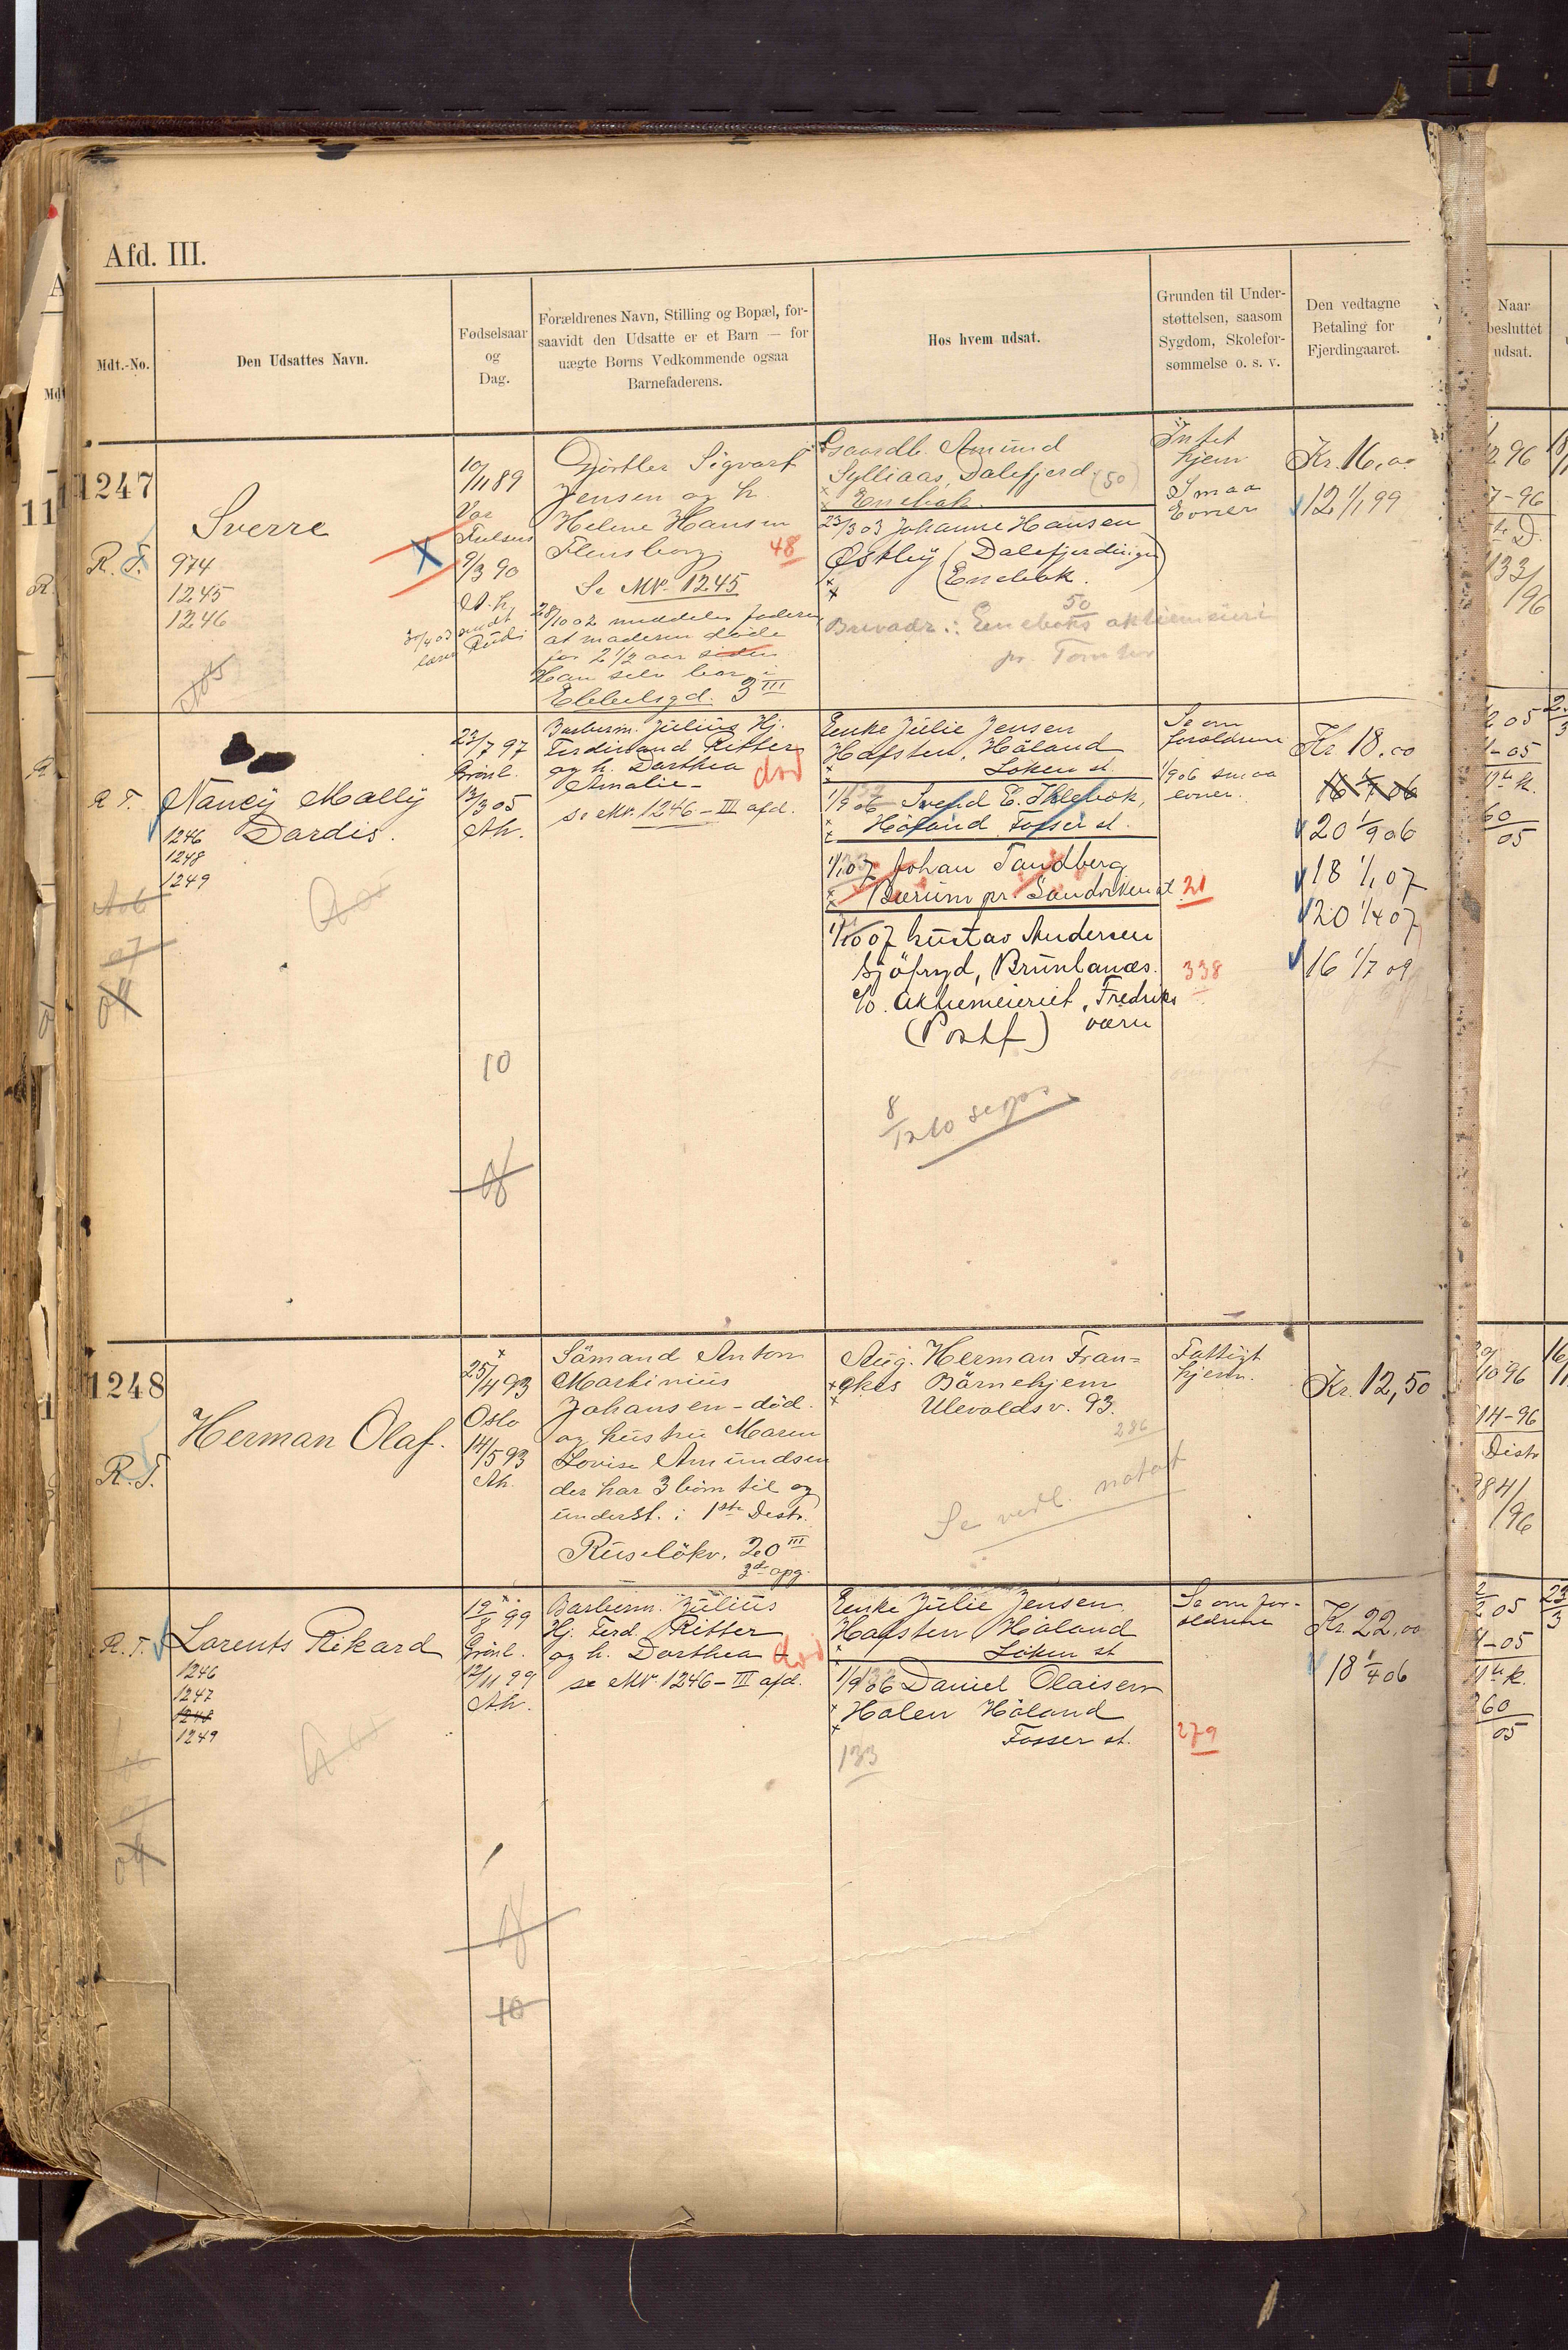 Afd. III.
Mdt.-No.
Den Udsattes Navn.
Fødselsaar
og
Dag.
Forældrenes Navn, Stilling og Bopæl, for-
saavidt den Udsatte er et Barn — for
uægte Børns Vedkommende ogsaa
Barnefaderens.
Hos hvem udsat.
Grunden til Under-
støttelsen, saasom
Sygdom, Skolefor-
sømmelse o. s. v.
Den vedtagne
Betaling for
Fjerdingaaret.
Naar
besluttet
udsat.
1247
R. T.
Sverre
974
1245
1246
10/11 89
9/3 90
Gjørtler Sigvart
Jensen og h.
Helene Hansen
Flensborg.
48
Se Nr. 1245
28/10 02 meddeler faderen
at moderen døde
for 2 1/2 aar siden
Han selv bor i
Ebbelsgd. 3 III
Gaardb. Amund
Sylliaas, Dalefjerd (50)
Enebak.
23/3 03 Johanne Hansen
Østby (Dalefjerdingen)
(Enebak.
50
Brevadr.: Enebaks aktiemeieri
pr. Tomter
Intet
hjem
Smaa
Evner
Kr. 16,00
12 1/1 99
R. T.
Nancy Mally
Dardis.
1246
1248
1249
23/7 97
Grönl.
12/3 05
Ah.
Barberm. Julius Hj.
Ferdinand Ritter
og h. Dorthea
Amalie -
død
se Nr. 1246 - III afd.
Enke Julie Jensen
Hafsten, Höland
Löken st.
1/9 06 Svend E. Thlebok,
Höland Fosser st.
1/1 07 Johan Tandberg
Bærum pr. Sandviken st.
21
1/10 07 Gustav Andersen
Sjöfryd, Brunlanæs.
338
c/o. Aktiemeieriet, Fredriks
værn
(Postf)
8/12 10 seppr.
Se om
foreldrene
1/9 06 smaa
evner.
Kr. 18.00
16 1/4 06
20 1/9 06
18 1/1 07
20 1/4 07
16 1/7 09
10
1248
R. T.
Herman Olaf.
25/4 93
Oslo
14/5 93
Ah.
Sömand Anton
Martinius
Johansen - död.
og hustru Maren
Lovise Amundsen
der har 3 börn til og
underst. i 1ste Distr.
Ruselökv. 20 III
3d opg.
Aug. Herman Fran=
ckes Börnehjem
Ulevoldsv. 93.
286
Se vedl. notat
Fattigt
hjem.
Kr. 12,50
R. T.
Lorents Rikard
1246
1247
1248
1249
Grönl.
12/11 99
Ah.
Barberm. Julius
Hj. Ferd. Ritter
og h. Dorthea
død
se Nr. 1246 - III afd.
Enke Julie Jensen
Hafsten Höland
Löken st
1/9 06 Daniel Olaisen
Holen Höland
Fosser st.
279
133
Se om for-
eldrene
Kr. 22,00
18 1/4 06
10